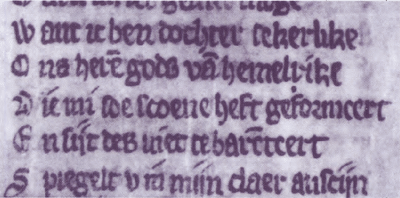 W ant ic ben dochter sekerlike
O ns herē gods vā hemelrike
D ie mi soe scoene heft geformeert
E n sijt des niet tebarēteert
S piegelt v in mijn claer anscijn